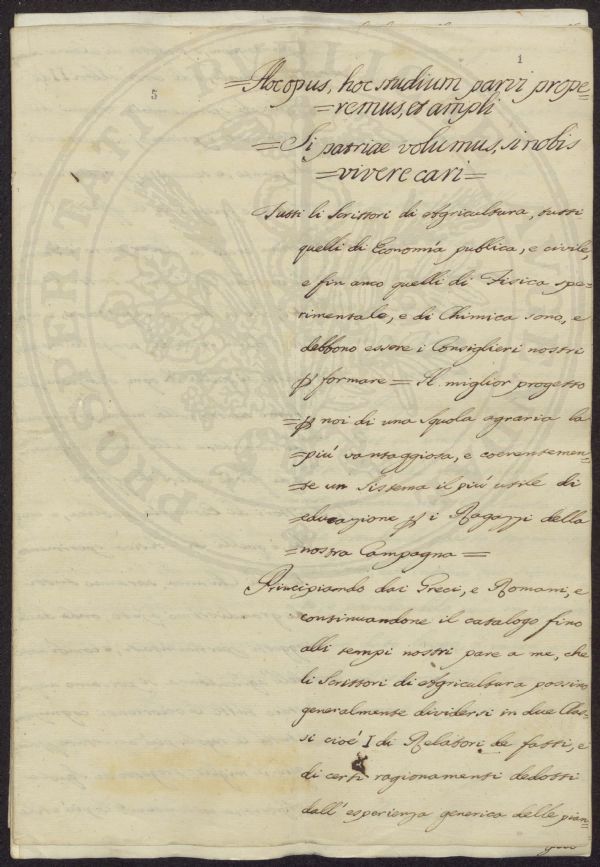 1
5
=Hoc opus, hoc studium parvi prope=
=remus, et ampli
=Si patriae volumus, si nobis
=vivere cari=
Tutti li Scrittori di Agricultura, tutti
quelli di Economia publica, e civile,
e fin anco quelli di Fisica spe=
rimentale, e di Chimica sono, e
debbono essere i Consiglieri nostri
p formare = Il miglior progetto
=p noi di una Squola agraria la
=più vantaggiosa, e coerentemen=
=te un Sistema il più utile di
=educazione p i Ragazzi della
=nostra Campagna=
Principiando dai Greci, e Romani, e
continuandone il catalogo fino
alli tempi nostri pare a me, che
li Scrittori di Agricultura possino
generalmente dividersi in due Clas=
si cioè I di Relatori de fatti, e
di certi ragionamenti dedotti
dall' esperienza generica delle pian=
PROSPERITATI PUBLICAE